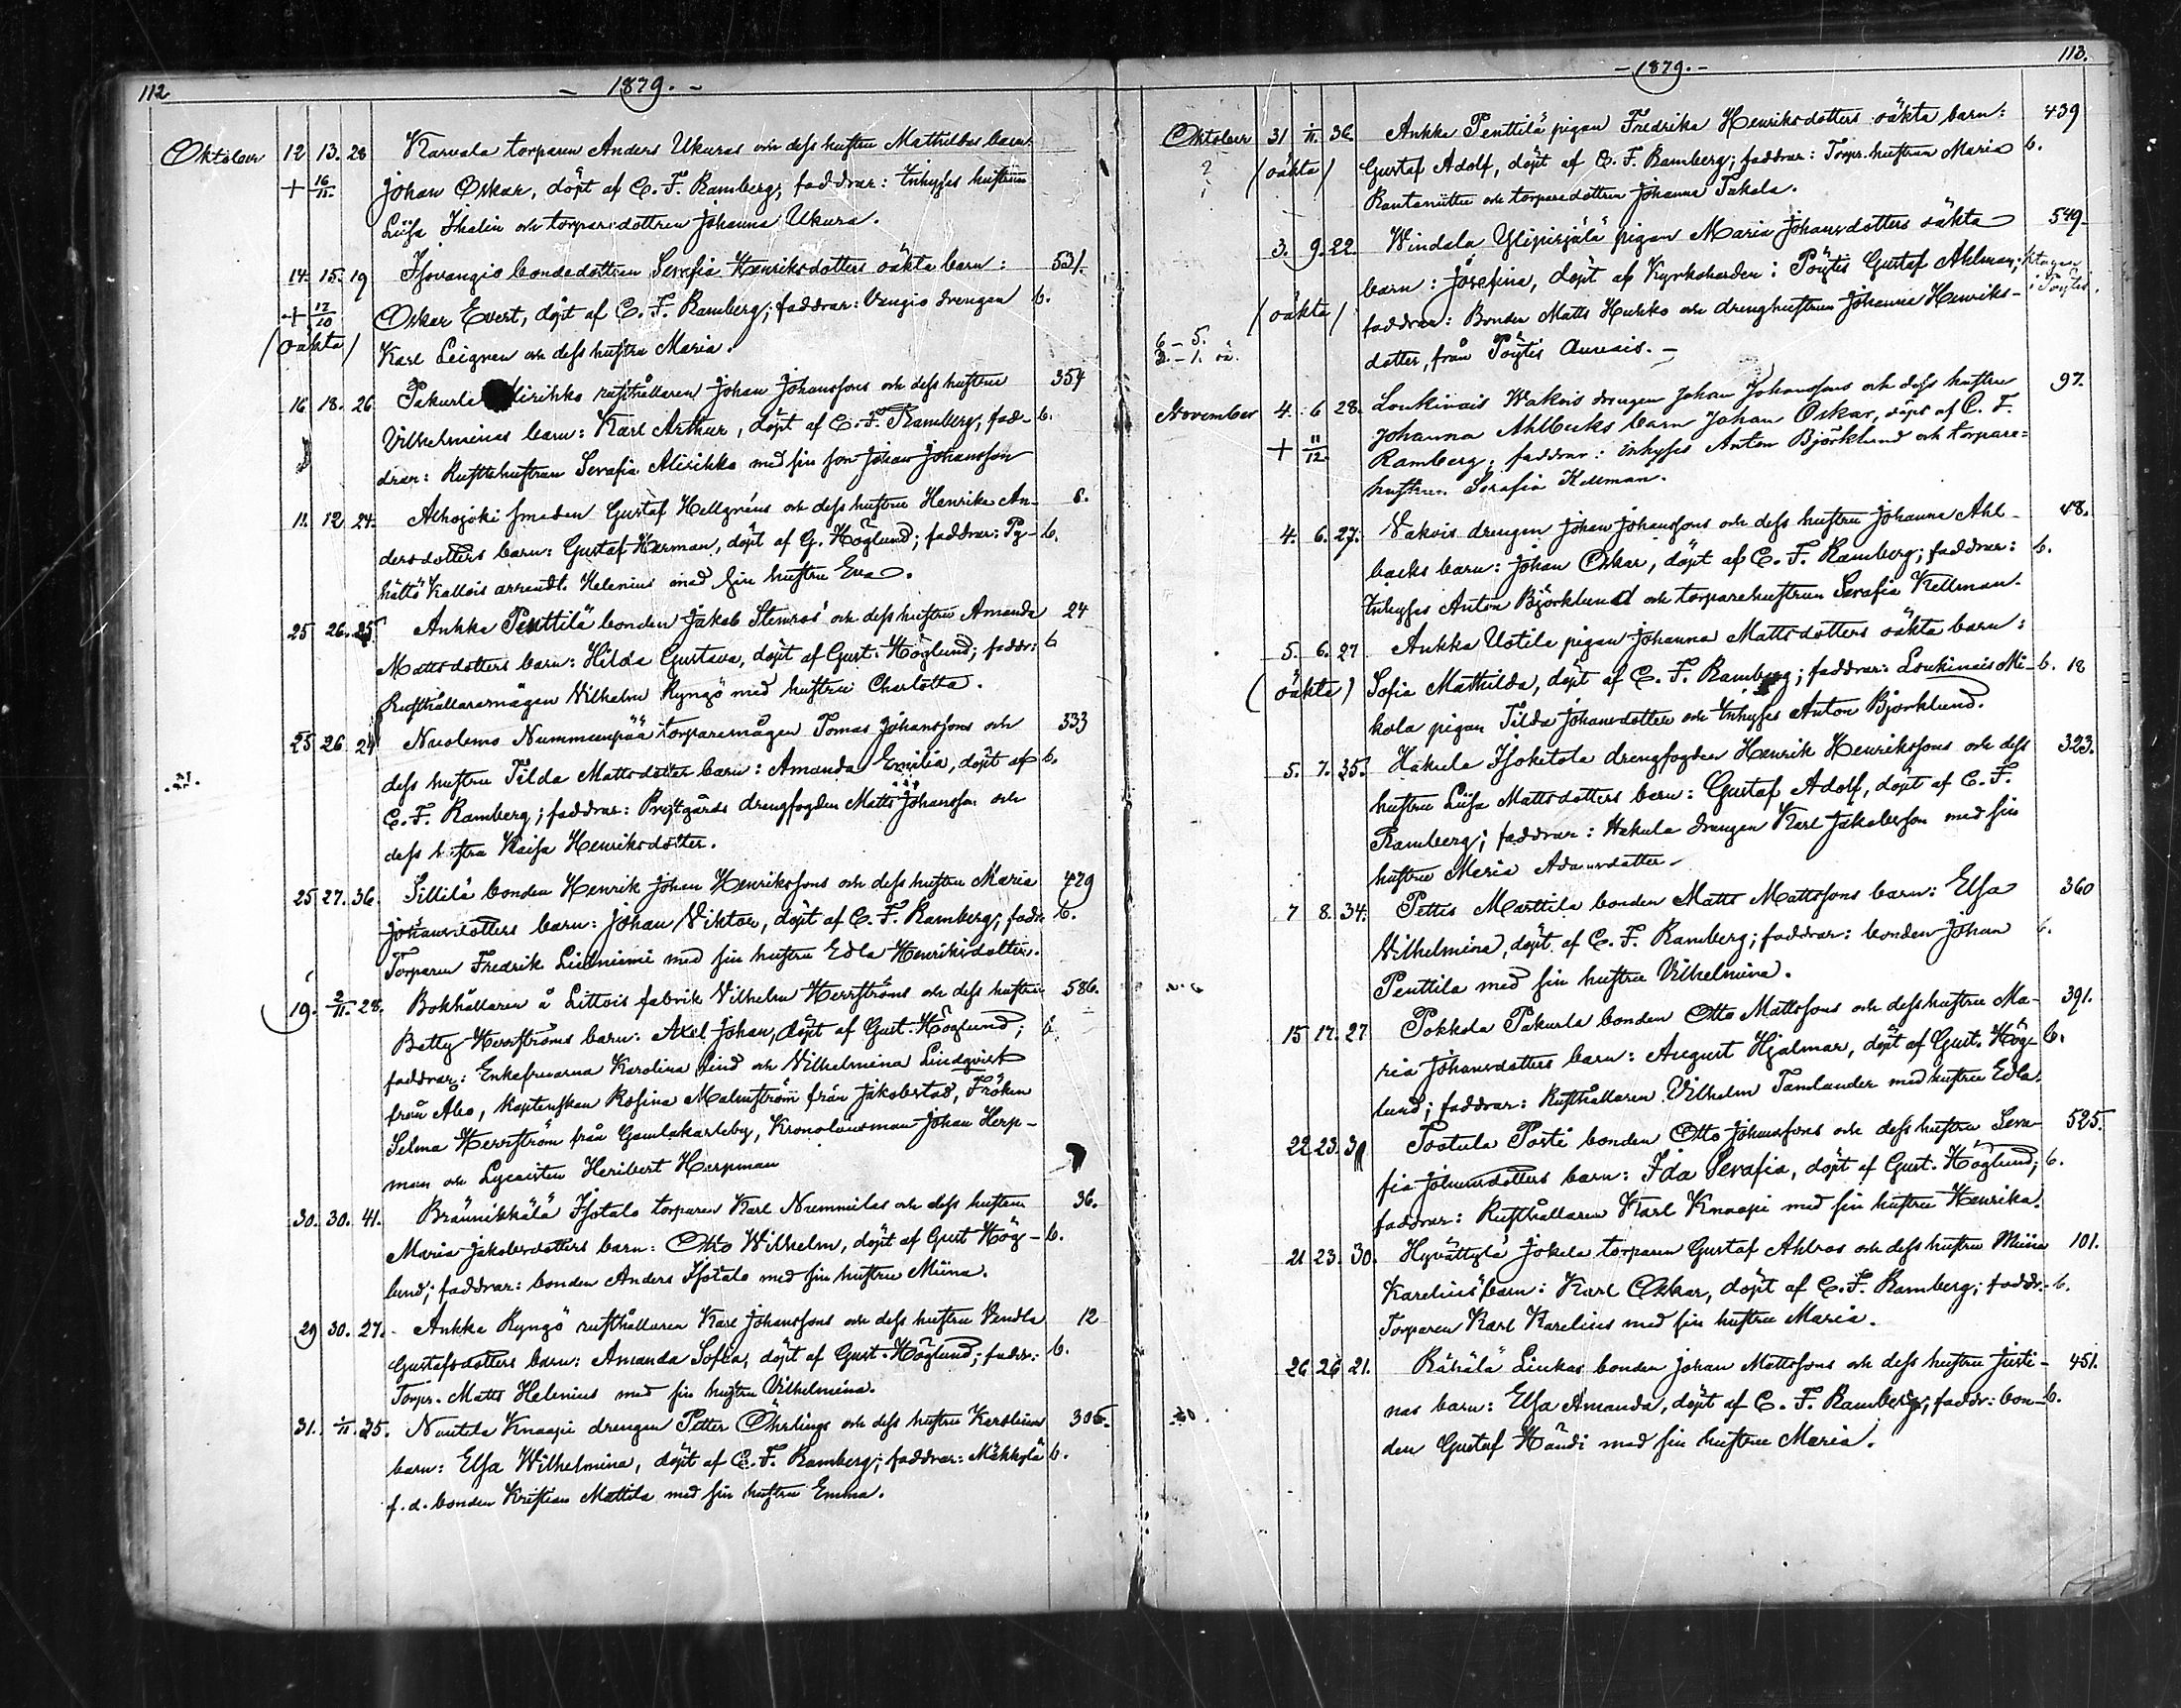 112
- 1879. -
Oktober 12 13. 28 Karvala torparen Anders Ukuras och dess hustru Mathildas barn
+ 16/11. Johan Oskar, döpt af C. F. Ramberg, faddrar: Inhyses hustrun
Liisa Thalin och torparedottren Johanna Ukura.
14. 15. 19 Isovangio bondedottren Serafia Henriksdotters oäkta barn: 531.
+ 17/10 Oskar Evert, döpt af C. F. Ramberg; faddrar: Vangio drengen b.
(oäkta) Karl Leigren och dess hustru Maria.
16 18. 26 Pakurla rusthållaren Johan Johanssons och dess hustru 354
Vilhelminas barn: Karl Arthur, döpt af C. F. Ramberg; fad- b.
drar: Rusthustrun Serafia Alirikko med sin son Johan Johansson
11. 12 24. Alhojoki smeden Gustaf Hellgréns och dess hustru Henrika An- 8.
dersdotters barn: Gustaf Herman, döpt af G. Höglund; faddrar: Py- b.
hältö Kallois arrendt. Helenius med sin hustru Eva.
25 26. 25 Ankka Penttilä bonden Jakob Stenros' och dess hustru Amanda 24
Mattsdotters barn: Hilda Gustava, döpt af Gust. Höglund; faddr: b
Rusthållaremågen Vilhelm Ryngö med hustru Charlotta.
25 26 24 Nuolemo Nummenpää torparemågen Tomas Johanssons och 333
dess hustru Tilda Mattsdotter barn: Amanda Emilia, döpt af b.
C. F. Ramberg; faddrar: Prestgårds drengfogden Matts Johansson och
dess hustru Kaisa Henriksdotter.
25 27. 36. Sillilä bonden Henrik Johan Henrikssons och dess hustru Maria 429
Johansdotters barn: Johan Viktor, döpt af C. F. Ramberg; fadr b.
Torparen Fredrik Liedniemi med sin hustru Edla Henriksdotter.
19. 2/11. 28. Bokhållaren å Littois fabrik Vilhelm Herrströms och dess hustru 586.
Betty Herrströms barn: Axel Johan, döpt af Gust. Höglund; b
faddrar: Enkefruarna Karolina Lind och Vilhelmina Lindqvist
från Åbo, Kaptenskan Rosina Malmström från Jakobstad, Fröken
Selma Herrström från Gamlakarleby, Kronolänsman Johan Herp-
man och Lyceisten Heribert Herpman
30. 30. 41. Brännikkälä Isotalo torparen Karl Nummilas och dess hustru 36.
Maria Jakobsdotters barn: Otto Wilhelm, döpt af Gust Hög- b.
lund; faddrar: bonden Anders Isotalo med sin hustru Miina.
29 30. 27. Ankka Ryngö rusthållaren Karl Johanssons och dess hustru Vendla 12
Gustafsdotters barn: Amanda Sofia, döpt af Gust. Höglund; faddr: b.
Torpr. Matts Helenius med sin hustru Vilhelmina.
31. 1/11. 35. Nautela Knaapi drengen Petter Öhrlings och dess hustru Karolinas 305.
barn: Elsa Wilhelmina, döpt af C. F. Ramberg; faddrar: Mäkkylä b.
f. d. bonden Kristian Mattila med sin hustru Emma.
113.
- 1879. -
Oktober 31 1/11. 36 Ankka Penttilä pigan Fredrika Henriksdotters oäkta barn: 439
(oäkta) Gustaf Adolf, döpt af C. F. Ramberg; faddrar: Torpr. hustrun Maria b.
Rantaniittu och torparedottren Johanna Takala.
3. 9. 22. Windala Ylipirjälä pigan Maria Johansdotters oäkta 549.
barn: Josefina, döpt af Kyrkoherden i Pöytis Gustaf Ahlman; i Pöytis.
(oäkta) faddrar: Bonden Matts Huhko och drenghustrun Johanna Henriks-
6 - 5. dotter, från Pöytis Auvais. -
2. - 1. oä.
November 4. 6 28. Loukinais Wakois drengen Johan Johanssons och dess hustru 97.
Johanna Ahlbacks barn Johan Oskar, döpt af C. F.
+ 11/12. Ramberg; faddrar: inhyses Anton Björklund och torpare=
hustrun Serafia Kellman.
4. 6. 27. Vakois drengen Johan Johanssons och dess hustru Johanna Ahl- 48.
backs barn: Johan Oskar, döpt af C. F. Ramberg; faddrar: b.
Inhyses Anton Björklund och torparehustrun Serafia Kellman.
5. 6. 27 Ankka Uotila pigan Johanna Mattsdotters oäkta barn:
(oäkta) Sofia Mathilda, döpt af C. F. Ramberg; faddrar: Loukinais Mi- b. 18
kola pigan Tilda Johansdotter och Inhyses Anton Björklund.
5. 7. 35. Hakula Isoketola drengfogden Henrik Henrikssons och dess 323.
hustru Liisa Mattsdotters barn: Gustaf Adolf, döpt af C. F.
Ramberg; faddrar: Hakula drengen Karl Jakobsson med sin
hustru Maria Adamsdotter -
7 8. 34. Pettis Marttila bonden Matts Mattssons barn: Elsa 360
Vilhelmina, döpt af C. F. Ramberg; faddrar: bonden Johan b.
Penttilä med sin hustru Vilhelmina.
15 17. 27 Pokkola Pakurla bonden Otto Mattssons och dess hustru Ma- 391.
ria Johansdotters barn: August Hjalmar, döpt af Gust. Hög- b.
lund; faddrar: Rusthållaren Vilhelm Tamlander med hustru Edla.
22 23. 30 Tostula Posti bonden Otto Johanssons och dess hustru Sera- 525.
fia Johansdotters barn: Ida Serafia, döpt af Gust. Höglund; b.
faddrar: Rusthållaren Karl Knaapi med sin hustru Henrika.
21 23. 30. Hyvättylä Jokela torparen Gustaf Ahlros och dess hustru Miina 101.
Karelius' barn: Karl Oskar, döpt af C. F. Ramberg; faddr. b.
Torparen Karl Karelius med sin hustru Maria.
26 26 21. Rähälä Liukas bonden Johan Mattssons och dess hustru Justi- 451.
nas barn: Elsa Amanda, döpt af C. F. Ramberg; faddr: bon- b.
den Gustaf Händi med sin hustru Maria.